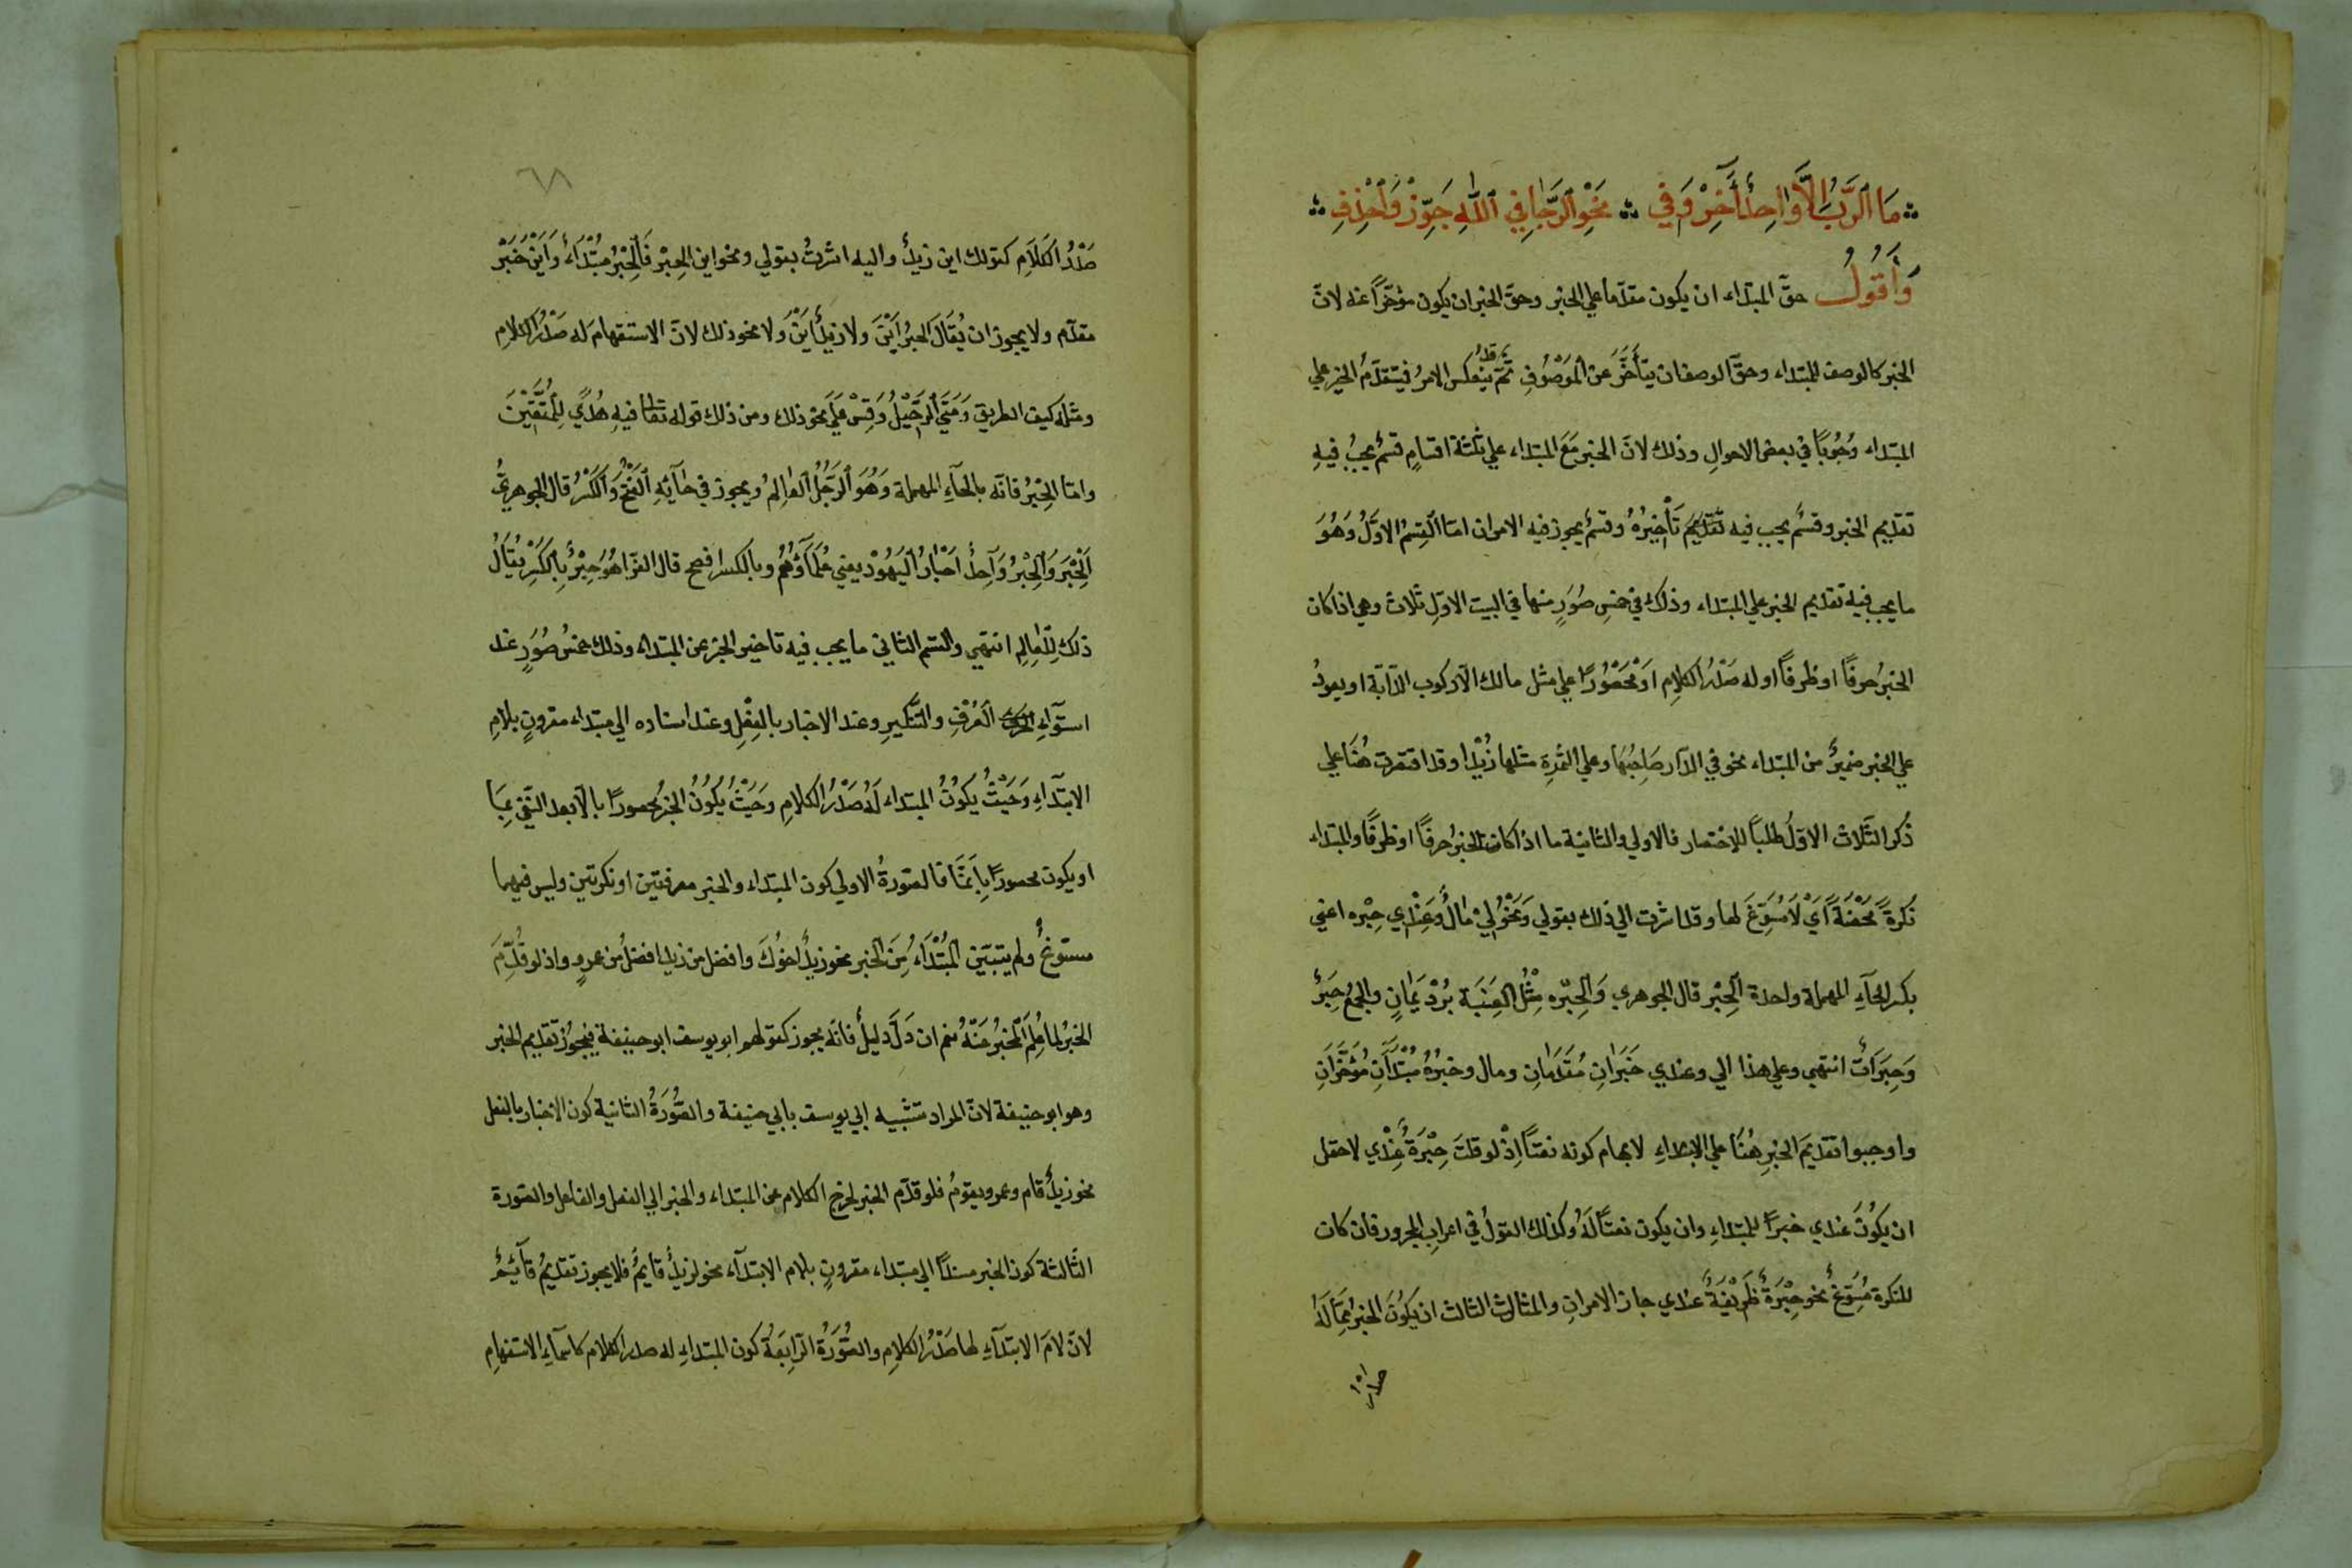 مَا ٱلرَّبُّ إِلَّا وَاحِدٌ أَخِّرْ وَفِي ∴ نَحْوِ ٱلرَّجَا فِي ٱللّٰهِ جَوِّزْ وَٱحْذِفِ
وَأَقُولُ حقّ المبتداء ان يكون مقدّما علي الخبر وحقّ الخبر ان يكون مؤخّراً عنه لانّ
الخبر كالوصف للمبتداء وحقّ الوصف ان يتأخّر عن الموصوف ثمّ قد ينعكس الامرُ فيتقدّمُ الخبر علي
المبتداء وُجُوبًا في بعض الاحوالِ وذلك لانّ الخبر مَعَ المبتداء علي ثلثة اقسامٍ قسمٌ يجبُ فيهِ
تقديم الخبر وقسمٌ يجب فيه تَأْخِيرُهُ وقسمٌ يجوز فيه الامران امّا القِسمُ الاوّلُ وَهُوَ
ما يجب فيه تقديم الخبر علي المبتداء وذلك في خمس صُوَرٍ منها في البيت الاوّلِ ثلاث وهي اذا كان
الخبرُ حرفًا او ظرفًا او له صَدْرُ الكلامِ اوْ مَحْصُورًا علي مثل مالك الّا ركوب الدّابّة او يعودُ
علي الخبر ضميرٌ من المبتداء نحو في الدّار صَاحِبُهَا وعلي التّمرةِ مثلها زُبْدا وقد اقتصرت هُنَا علي
ذكر الثّلاث الاوَلُ طلبًا للاختصار فالاولي والثانية ما اذا كان الخبرُ حرفًا او ظرفًا والمبتداء
نكرةً مَحْضَةً اَيْ لَا مُسَوِّغَ لها وقد اشرت الي ذلك بقولي وَنَحْوُ لِيْ مَالٌ وَعِنْدِي حِبَره اعني
بكسر الحآءِ المهملة واحدة الحِبَر قال الجوهري وَالحِبَره مِثْلُ العِنَبَة بُرْدٌ يَمَانٍ والجمعُ حِبَرٌ
وَحِبَرَاتٌ انتهي وعلي هذا الي وعندي خَبَرَانِ مُقَدَّمَانِ ومال وحبرُهُ مُبْتَدَآَنِ مُؤَخَّرَانِ
واوجبوا تقديمَ الخبرِ هُنَا علي الابتداءِ لايهام كونه نعتًا اِذْ لو قلتَ حِبْرَةٌ عِنْدِي لاحتمل
ان يكُونَ عندي خبراً للمبتداءِ وان يكون نعتًا لَهُ وكذلك القولُ في اعراب المجرور فان كان
للنكرة مُسَوّغٌ نحو حِبْرَةٌ ظَرِيْفَةٌ عندي جاز الامرانِ والمثال الثالث ان يَكُوْنَ الخبرُ مِمَّا لَهُ
صدر
٦٨
صَدْرُ الكَلَامِ كقولك اين زيدٌ واليه اشرتُ بقولي ونحو اين الحِبْرُ فَالحِبْرُ مُبْتَدَاءٌ وَاَيْنَ خَبَرٌ
مقدّم ولا يجوز ان يُقَالَ الحبرُ اَيْنَ ولا زيدٌ اَيْنَ وَلا نحو ذلك لانّ الاستفهام لَه صَدْرُ الكلامِ
ومثله كيف الطريق وَمَتَيَ الرَّحِيْلُ وَقِسْ عَلَيَ نحو ذلك ومن ذلك قوله تعالي فيهِ هُدًي لِلْمُتَّقِيْنَ
وامّا الحِبْرُ فانّه بالحآءِ المهملة وَهُوَ ٱلرَّجُلُ ٱلعَالِمُ ويجوز في حَآئِهِ ٱلفَتْحُ وَٱلكَسْرُ قال الجوهريُّ
اَلحَِبْرَ وَالحِبْرُ وَاحِدُ اَحْبَارُ اليَهُوْد يعني عُلَمَآؤُهُمْ وبالكسر افصح قال الفرّا هُوَ حِبْرٌ بِالكَسْرِ يُقَالُ
ذلك لِلْعَالِمِ انتهي والقسم الثاني ما يجب فيه تاخير الخبر عن المبتداء وذلك خمسُ صُوَرٍ عند
استوآءِ العُرْفِ والتَّنكيرِ وعند الاخبار بالفِعْلِ وعند اسناده الي مبتداء مقرونٍ بلامِ
الابتدآءِ وَحَيْثُ يَكُوْنُ المبتداء لَهُ صَدْرُ الكلامِ وَحَيْثُ يَكُوْنُ الخبرُ محصورًا بالّا بعد النّفي بِمَا
او يكون محصورًا بِاِنَّمَا فالصّورةُ الاولي كون المبتداء والخبر معرفتين او نكرتين وليس فيهما
مسوّغٌ ولم يتبيّن المُبْتَدَاءُ مِنَ الخبر نحو زيدٌ اخوْكَ وافضل من زيد افضلُ من عمروٍ واذ لو قُدِّمَ
الخبرُ لما عُلِمَ المخبرُ عَنْهُ نعم ان دَلَّ دليلٌ فانّه يجوز كقولهم ابو يوسف ابو حنيفة فيجُوْز تقديم الخبر
وهو ابو حنيفة لانّ المراد تشبيه ابي يوسف بابي حنيفة والصُّوْرَةُ الثانية كون الاخبار بالفعل
نحو زيدٌ قام وعمرو يقومُ فلو قدّم الخبر لخرج الكلام عن المبتداء والخبر الي الفعل والفاعل والصّورة
الثّالثة كون الخبر مسندًا الي مبتداء مقرونٍ بلام الابتدآء نحو لزيدٌ قايمٌ فلا يجوز تقديمُ قآئِمٌ
لانّ لامَ الابتدآءِ لها صَدْرُ الكلامِ والصُّوْرَةُ الرّابِعَةُ كون المبتداءِ له صدر الكلام كاسمآءِ الاستفهامِ